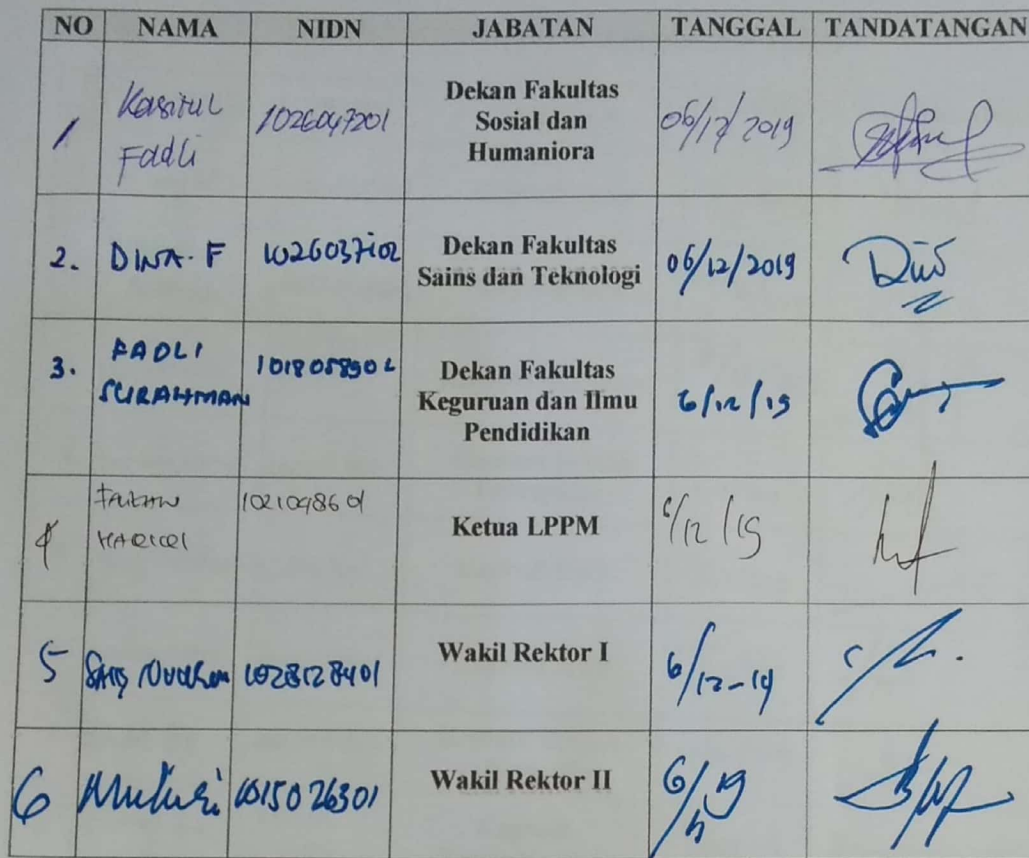 NO NAMA NIDN JABATAN TANGGAL TANDATANGAN
1 Kasirul Fadli 1026047201 Dekan Fakultas Sosial dan Humaniora 06/12/2019
2. DINA. F 1026037102 Dekan Fakultas Sains dan Teknologi 06/12/2019
3. FADLI SURAHMAN 1018058902 Dekan Fakultas Keguruan dan Ilmu Pendidikan 6/12/19
4 1021098601 Ketua LPPM 6/12/19
5 1028128401 Wakil Rektor I 6/12-19
6 1015026301 Wakil Rektor II